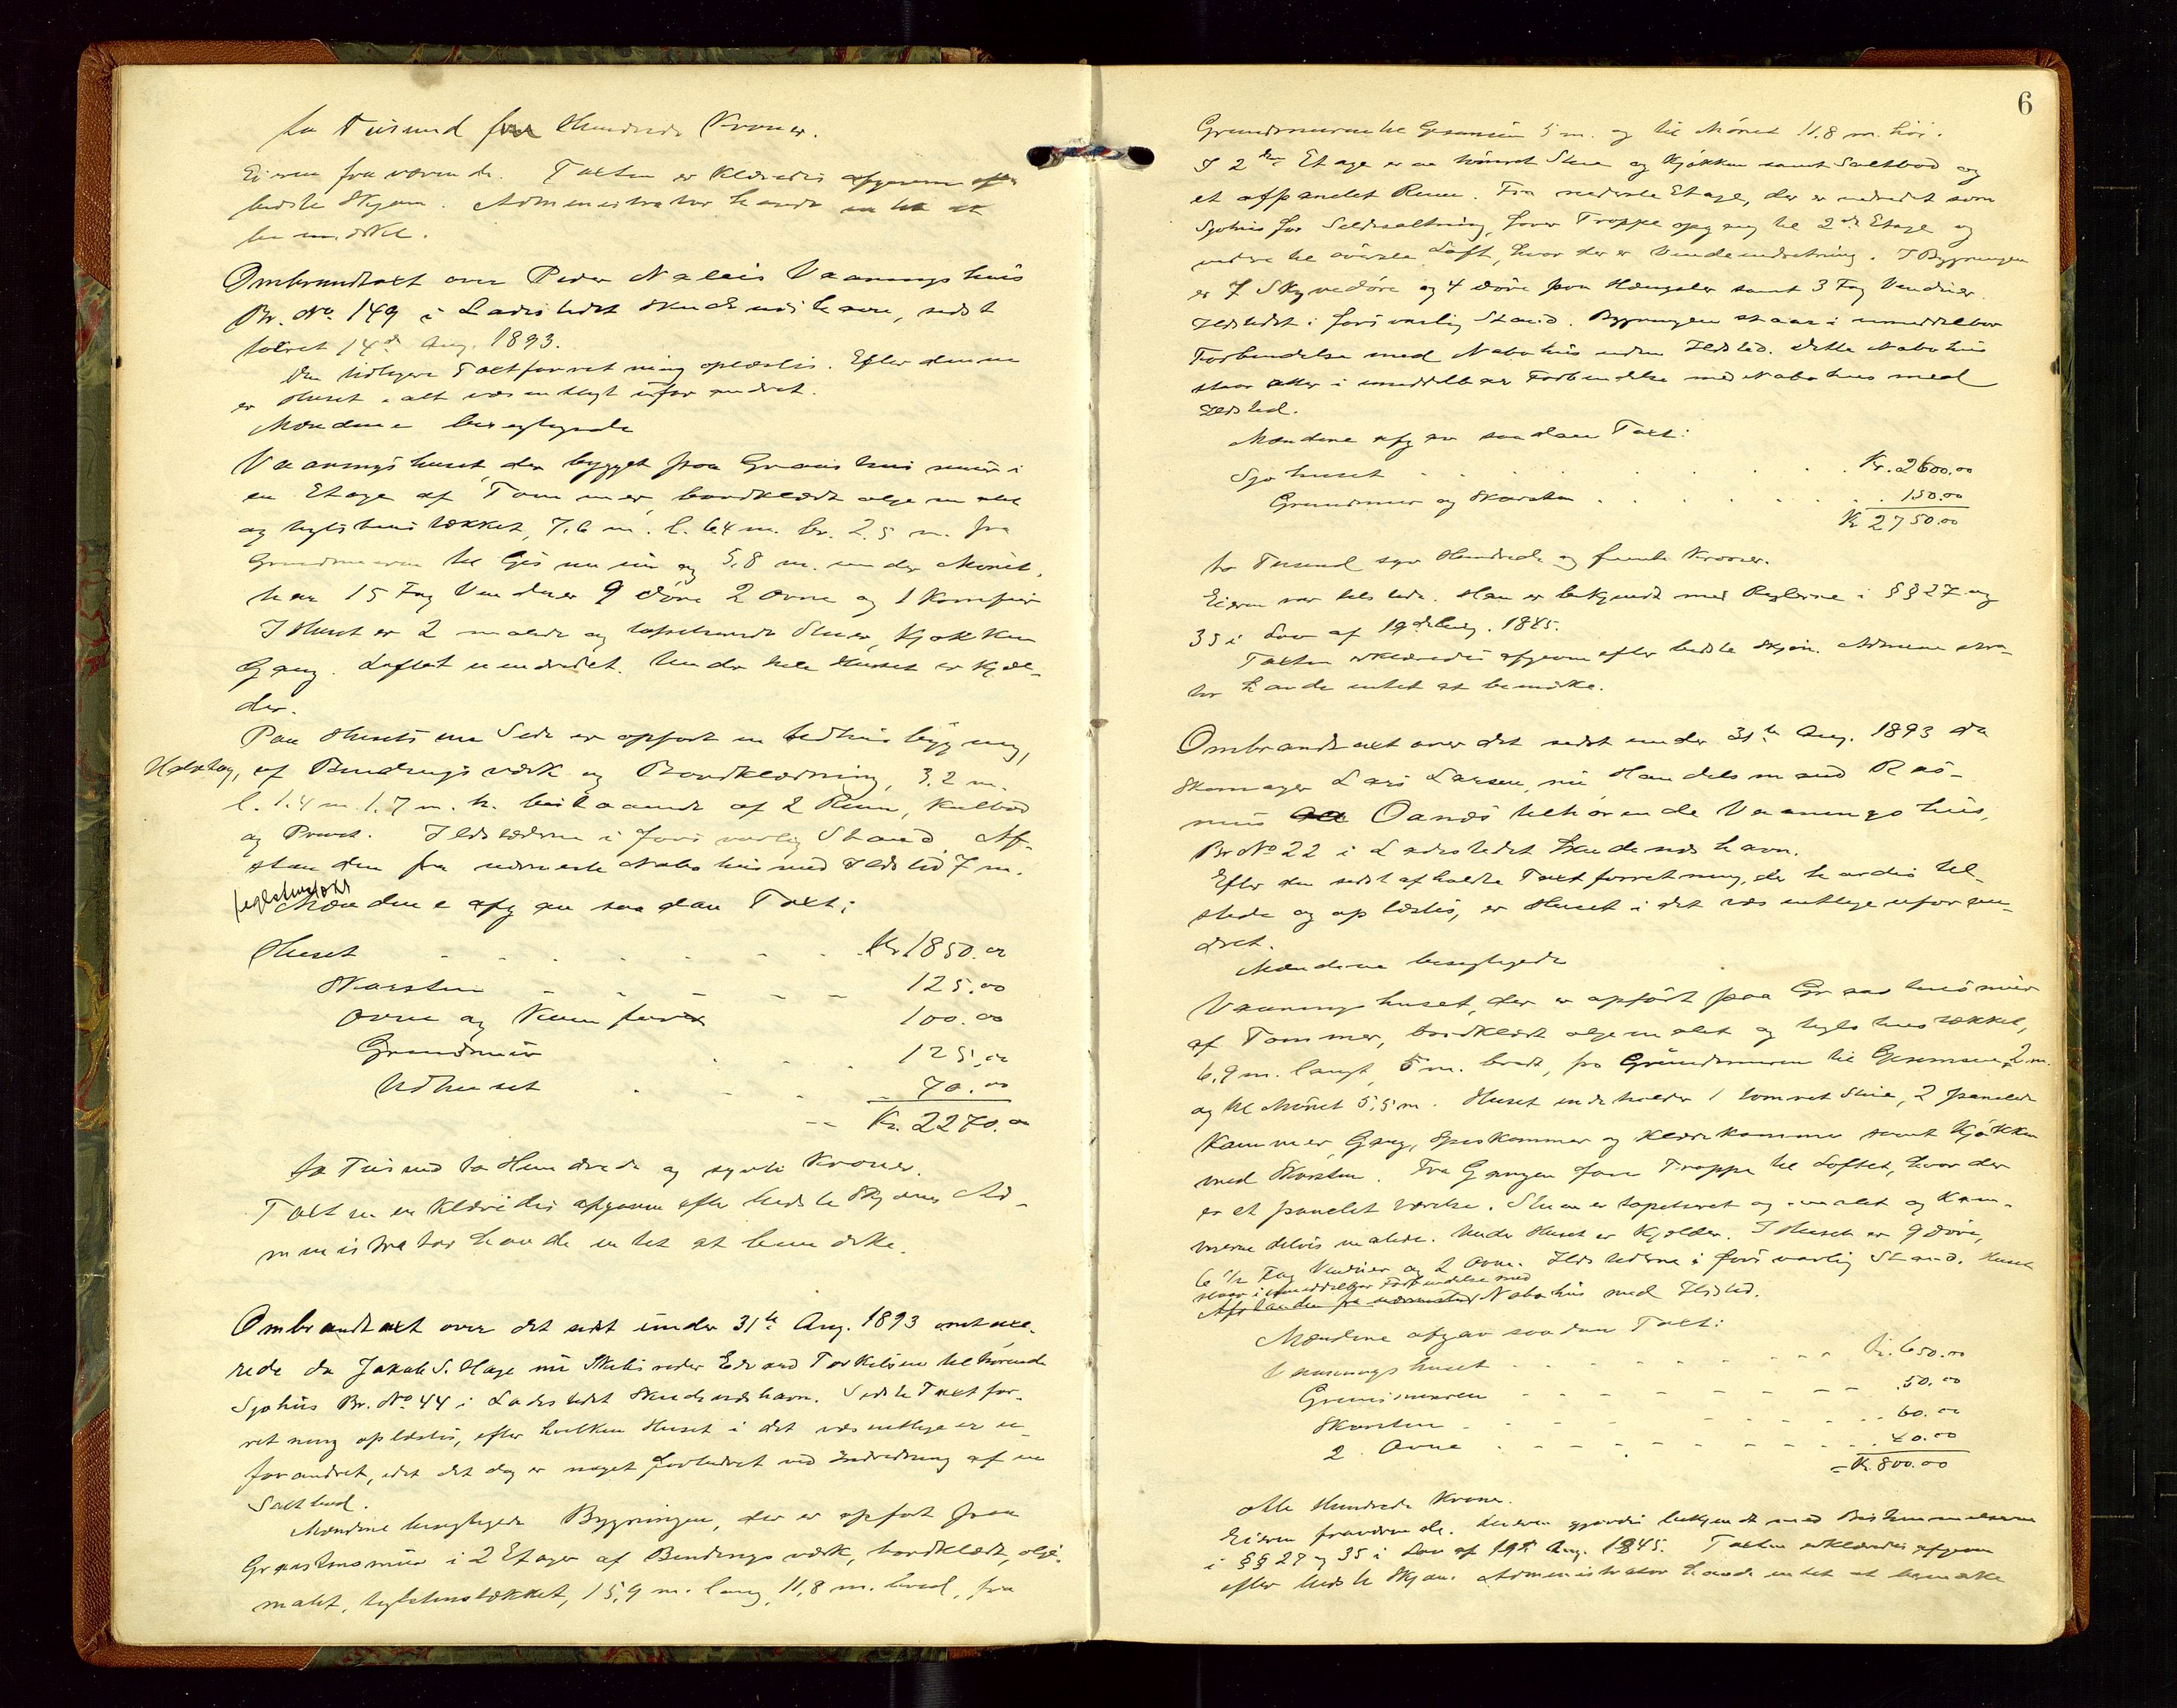 to Tusend fem Hundrede Kroner.
Eieren fraværende. Taxten erklæredes afgiven efter
bedste Skjøn. Administrator havde intet at
bemærke.
Ombrandtaxt over Peder Næleis Vaaningshus
Br. No. 149 i Ladestedet Skudesneshavn, sidst
taxeret 14de Aug. 1893.
Den tidligere Taxtforretning oplæstes. Efter denne
er Huset i alt væsentligt uforandret.
Mændene besigtigede
Vaaningshuset, der bygget paa Graastensmur i
en Etage af Tømmer, bordklædt oljemalet
og teglstenstækket, 7.6 m. l. 6.4 m. br. 2.5 m. fra
Grundmuren til Gesimsen og 5,8 m. under Mønet,
har 15 Fag Vinduer 9 Døre 2 Ovne og 1 Komfur
I Huset er 2 malede og tapetserede Stuer, Kjøkken
Gang. Loftet uindredet. Under hele Huset er Kjæl-
der.
Paa Husets ene Side er opført en Udhusbygning,
Halvtag, af Bindingsværk og Bordklædning, 3,2 m.
l. 1.4 m. 1.7 m. h. bestaaende af 2 Rum, Kulbod
og Privet. Ildstederne i forsvarlig Stand. Af-
standen fra nærmeste Nabohus med Ildsted 7 m.
teglstenstækt
Mændene afgav saadan Taxt:
Huset . . . . . . . Kr. 1850.00
Skorsten . . . . . 125.00
Ovne og Komfur 100.00
Grundmur . . . 125.00
Udhuset . . . . 70.00
-- Kr. 2270.00
to Tusend to Hundrede og sytti Kroner.
Taxten erklæredes afgiven efter bedste Skjøn. Ad-
ministrator havde intet at bemærke.
Ombrandtaxt over det sidst under 31te Aug. 1893 omtaxe-
rede da Jakob S. Hage nu Skibsreder Edvard Torkelsen tilhørende
Sjøhus Br. No. 44 i Ladestedet Skudesneshavn. Sidste Taxtfor-
retning oplæstes, efter hvilken Huset i det væsentlige er u-
forandret, idet det dog er noget forbedret ved Indredning af en
Saltbod.
Mændene besigtigede Bygningen, der er opført paa
Graastensmur i 2 Etager af Bindingsværk, bordklædt, olje-
malet, teglstenstækket, 15,9 m. lang, 11,8 m. bred, fra
6
Grundmuren til Gesimsen 5 m. og til Mønet 11.8 m. høi.
I 2den Etage er en tømret Stue og Kjøkken samt Saltbod og
et afpanelet Rum. Fra nederste Etage, der er indredet som
Sjøhus for Sildesaltning, fører Trappe opgang til 2den Etage og
videre til øverste Loft, hvor der er Vindeindretning. I Bygningen
er 7 Skyvedøre og 4 Døre paa Hængsler samt 3 Fag Vinduer.
Ildstedet i forsvarlig Stand. Bygningen staar i umiddelbar
Forbindelse med Nabohus uden Ildsted. Dette Nabohus
staar atter i umiddelbar Forbindelse med Nabohus med
Ildsted.
Mændene afgav saadan Taxt:
Sjøhuset . . . . . . . Kr. 2600.00
Grundmur og Skorsten . . . . . . . 150.00
Kr. 2750.00
to Tusend syv Hundrede og femti Kroner.
Eieren var tilstede. Han er bekjendt med Reglerne i §§ 27 og
35 i Lov af 19de Aug. 1845.
Taxten erklæredes afgiven efter bedste Skjøn. Administra-
tor havde intet at bemærke.
Ombrandtaxt over det sidst under 31te Aug. 1893 da
Skomager Lars Larsen, nu Handelsmand Ras-
mus Oanæs tilhørende Vaaningshus,
Br No 22 i Ladestedet Skudesneshavn.
Efter den sidst afholdte Taxtforretning, der havdes til-
stede og oplæstes, er Huset i det væsentlige uforan-
dret.
Mændene besigtigede
Vaaningshuset, der er opført paa Graastensmur
af Tømmer, bordklædt oljemalet og teglstenstækket,
6,9 m. langt, 5 m. bredt, fra Grundmuren til Gesimsen 2 m.
og til Mønet 5,5 m. Huset indeholder 1 tømret Stue, 2 panelede
Kammer, Gang, Spiskammer og Klædekammer samt Kjøkken
med Skorsten. Fra Gangen fører Trappe til Loftet, hvor der
er et panelet Værelse. Stuen er tapetseret og malet og Kam-
merne delvis malede. Under Huset er Kjælder. I Huset er 9 Døre,
6 1/2 Fag Vinduer og 2 Ovne. Ildstederne i forsvarlig Stand. Huset
staar i umiddelbar Forbindelse med
Afstanden fra nærmeste Nabohus med Ildsted.
Mændene afgav saadan Taxt:
Vaaningshuset . . . . . . . . . Kr. 650.00
Grundmuren . . . . . . . . . 50.00
Skorsten . . . . . . . . . 60.00
2 Ovne . . . . . . . . . 40.00
= Kr. 800.00
otte Hundrede Kroner.
Eieren fraværende. Leieren gjordes bekjendt med Bestemmelserne
i §§ 27 og 35 i Lov af 19de Aug. 1845. Taxten erklæredes afgiven
efter bedste Skjøn. Administrator havde intet at bemærke